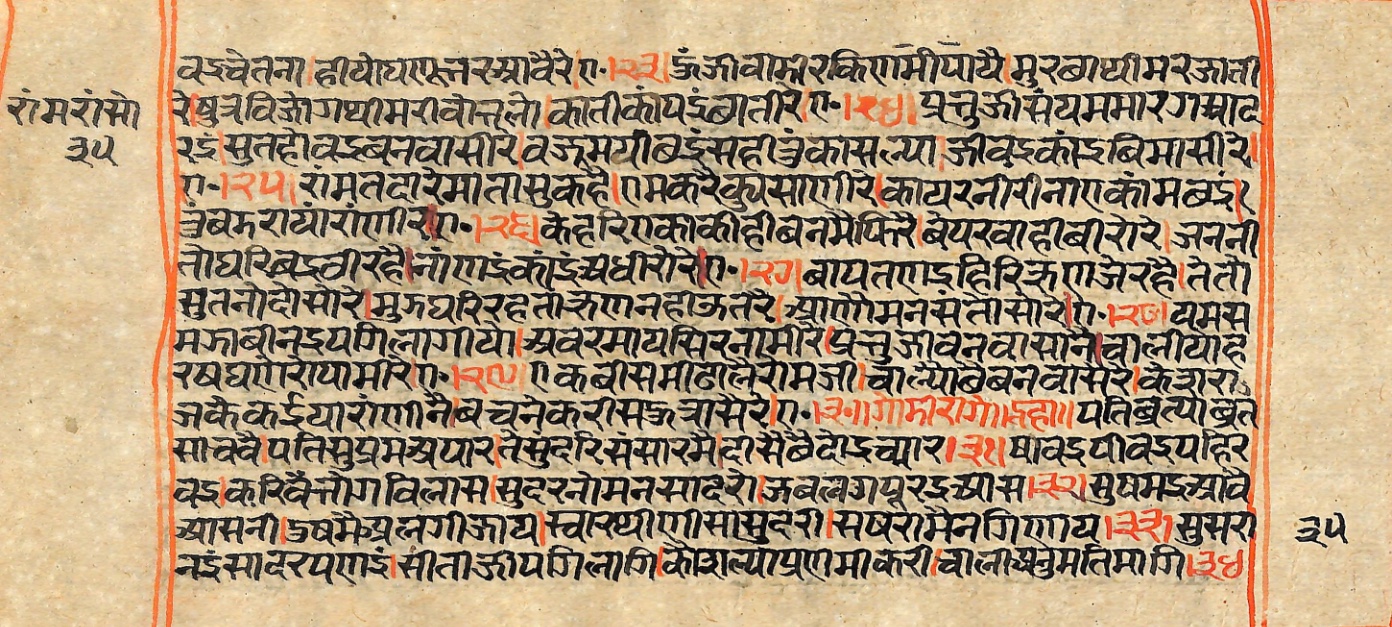 वइचेतना।हीयोघणूंत्तरआवैरे।ए.।२३।ऊंजीवामीरकिणमीपायै।मुरबाथीमरजाती
रांमरांसो
रे।षुत्रविजोगथीमरीवोत्तलो।कातीकांपइंबातीरे।ए.।२४।प्रत्तुजीसंयममारगआद
३५
रइं।सुतहीवइबनवासीरे।वजूमयीबइंसहीत्रुंकासल्या।जीवइकांइबिमासीरे।
ए.।२५।रांमतदारेमातासुकहै।एमकरैकुयसाणीरे।कायरनीरीनाएकांमबइं।
त्रुबऊरायांरांणीरे।ए.।२६।केहरिएकाकीहीबनमैफिरै।बेपरवाहीबीरोरे।जननी
तोघरिबइवीरहै।नांणइंकांइंअधीरोरे।ए.।२७।बापतणइहिरिऊणजेरहै।तेतो
सुतनोदोसोरे।मुऊघरिरहतोऊणनहीऊतरै।आणौमनसतोसोरे।ए.।२८।यमस
मऊाबीनइपगिलागीयो।अवरमायसिरनामीरे।प्रत्तुजीवनवासानै।चालीयोह
रषघणोरोपामीरे।ए.।२९।एकबीसमीढालैरोमजी।चाल्योबैबनवासैरे।केशरा
जकैकईयारांणीनै।बचनेकरीसऊत्रासैरे।ए.।३०।गोमीरागे।दूहा॥पतिब्रत्याब्रत
साचवै।पतिसुप्रेमअपार।तेसुंदरिसंसारमै।दीसैबैदोइच्यार।३१।षावइपीवइपहिर
वइ।करिवैत्तोगविलास।सुंदरनोमनसादरो।जबलगपूरइआस।३२।सुषमइआवै
आसनी।दुषमैअलगीजाय।स्वारथीणीसासुंदरी।सषरामैनगिणाय।३३।सुसरा
३५
नइंसादरपणइं।सीताजीपगिलागि।कौशल्याप्रणमीकरी।चालाअनुमतिमागि।३४